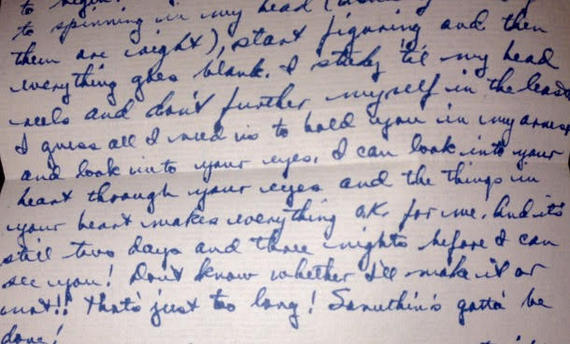 to begin!
to spinning in my head (
them are right), start figuring and then
everything goes blank. I study 'til my head
reels and don't further myself in the least
I guess all I need is to hold you in my arms
and look into your eyes. I can look into your
heart through your eyes and the things in
your heart makes everything o.k. for me. And it's
still two days and three nights before I can
see you! Don't know whether I'll make it or
not!! That's just too long! Somethin's gotta' be
done!